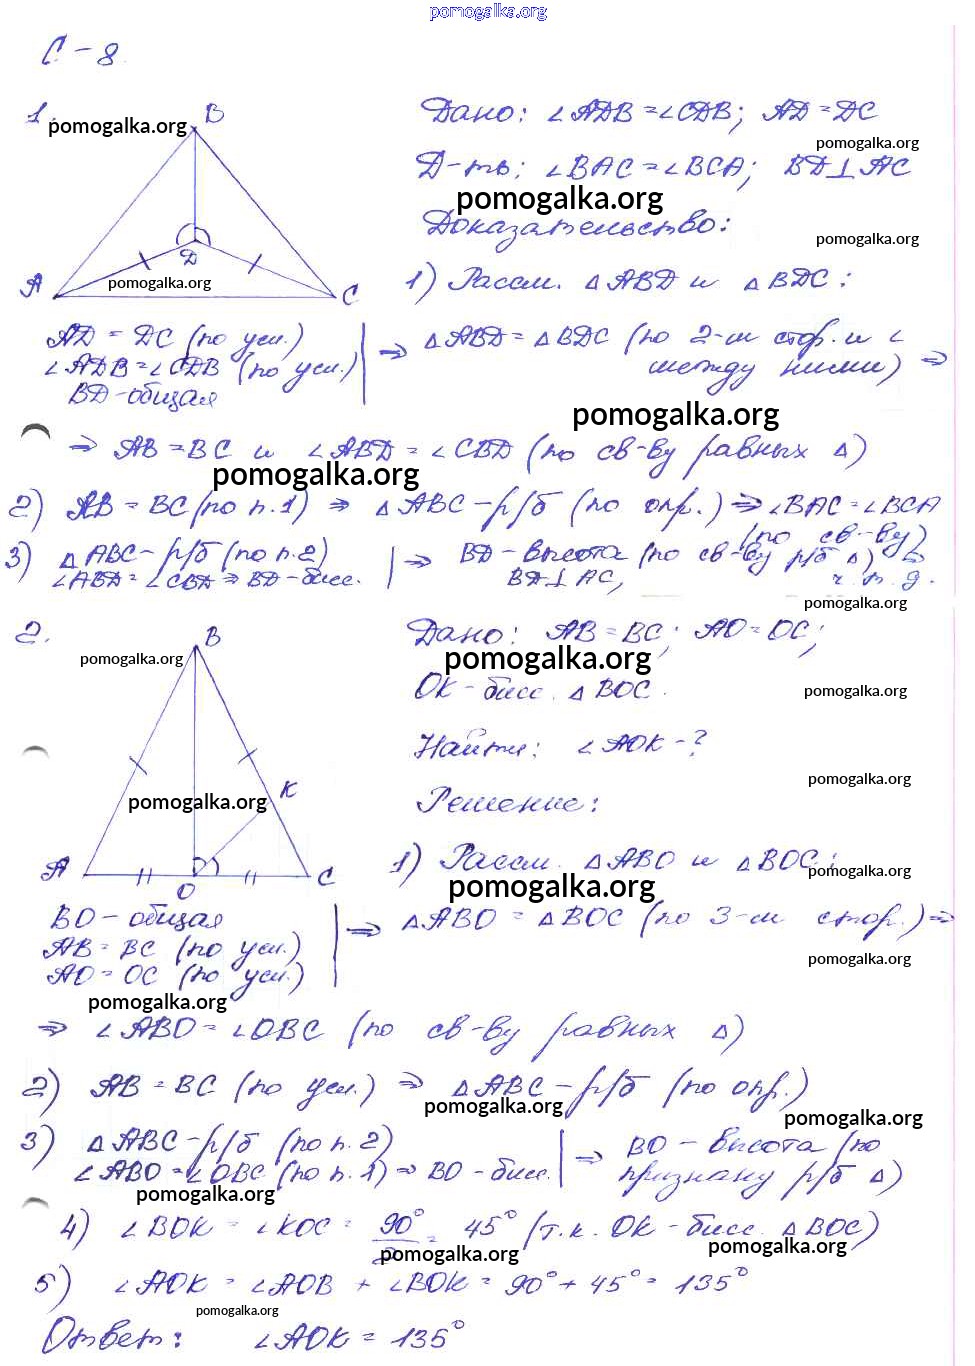 pomogalka.org
С - 8
1.
pomogalka.org
B
A
D
C
pomogalka.org
Дано: ∠ADB = ∠CDB; AD = DC
pomogalka.org
Д-ть: ∠BAC = ∠BCA; BD⊥AC
pomogalka.org
Доказательство:
pomogalka.org
1) Рассм. △ABD и △BDC:
AD = DC (по усл.)
∠ADB = ∠CDB (по усл.)
BD - общая
⇒ △ABD = △BDC (по 2-м стор. и ∠
между ними) ⇒
pomogalka.org
⇒ AB = BC и ∠ABD = ∠CBD (по св-ву равных △)
pomogalka.org
2) AB = BC (по п. 1) ⇒ △ABC - р/б (по опр.) ⇒ ∠BAC = ∠BCA
(по св-ву)
3) △ABC - р/б (по п. 2)
∠ABD = ∠CBD ⇒ BD - бисс.
⇒ BD - высота (по св-ву р/б △) ⇒
BD⊥AC,
ч. т. д.
pomogalka.org
2.
B
pomogalka.org
K
pomogalka.org
A
O
C
Дано: AB = BC; AO = OC;
pomogalka.org
OK - бисс. △BOC.
pomogalka.org
Найти: ∠AOK - ?
pomogalka.org
Решение:
1) Рассм. △ABO и △BOC:
pomogalka.org
pomogalka.org
BO - общая
AB = BC (по усл.)
AO = OC (по усл.)
⇒ △ABO = △BOC (по 3-м стор.) ⇒
pomogalka.org
pomogalka.org
⇒ ∠ABO = ∠OBC (по св-ву равных △)
2) AB = BC (по усл.) ⇒ △ABC - р/б (по опр.)
pomogalka.org
pomogalka.org
3) △ABC - р/б (по п. 2)
∠ABO = ∠OBC (по п. 1) ⇒ BO - бисс.
⇒ BO - высота (по
признаку р/б △)
pomogalka.org
4) ∠BOK = ∠KOC = 90°/2 = 45° (т.к. OK - бисс. △BOC)
pomogalka.org
pomogalka.org
5) ∠AOK = ∠AOB + ∠BOK = 90° + 45° = 135°
pomogalka.org
Ответ: ∠AOK = 135°